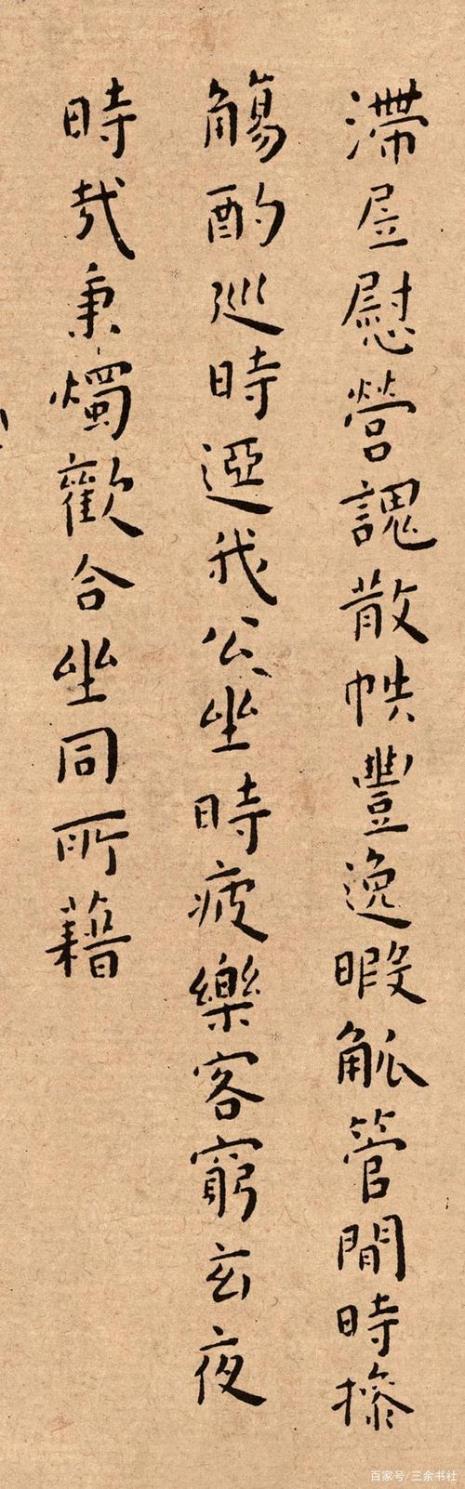 滯㞐慰營謉散帙豐逸暇觚管閒時摻
觴酌巡時我公坐時疲樂客窮玄夜
時哉秉燭歡合坐同所藉
百家号/三余书社